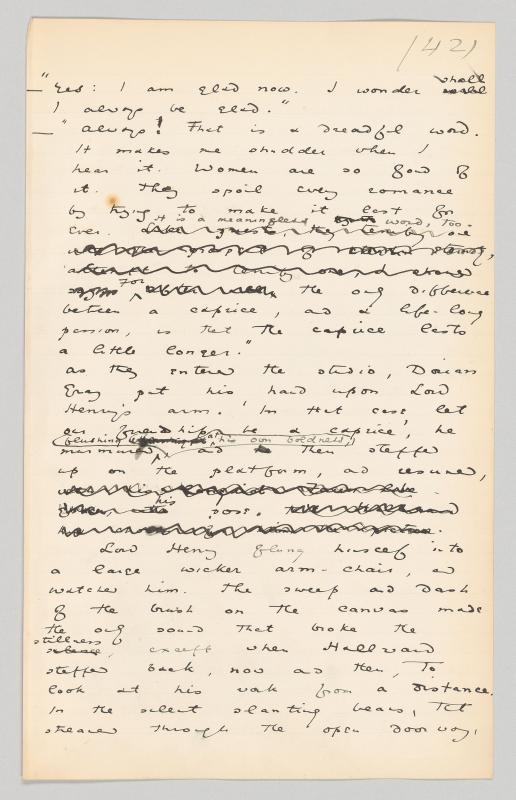 (42)
"Yes: I am glad now. I wonder shall
I always be glad."
"Always! That is a dreadful word.
It makes me shudder when I
hear it. Women are so fond of
it. They spoil every romance
by trying to make it last for
it is a meaningless word, too.
ever.
For the only difference
between a caprice, and a life-long
passion, is that the caprice lasts
a little longer."
As they entered the studio, Dorian
Gray put his hand upon Lord
Henry's arm. 'In that case let
our friendship be a caprice', he
flushing at his own boldness,
murmured, and then stepped
up on the platform, and resumed,
his
pose.
Lord Henry flung himself into
a large wicker arm-chair, and
watched him. The sweep and dash
of the brush on the canvas made
the only sound that broke the
stillness
, except when Hallward
stepped back, now and then, to
look at his work from a distance.
In the silent slanting beams, that
streamed through the open door way,